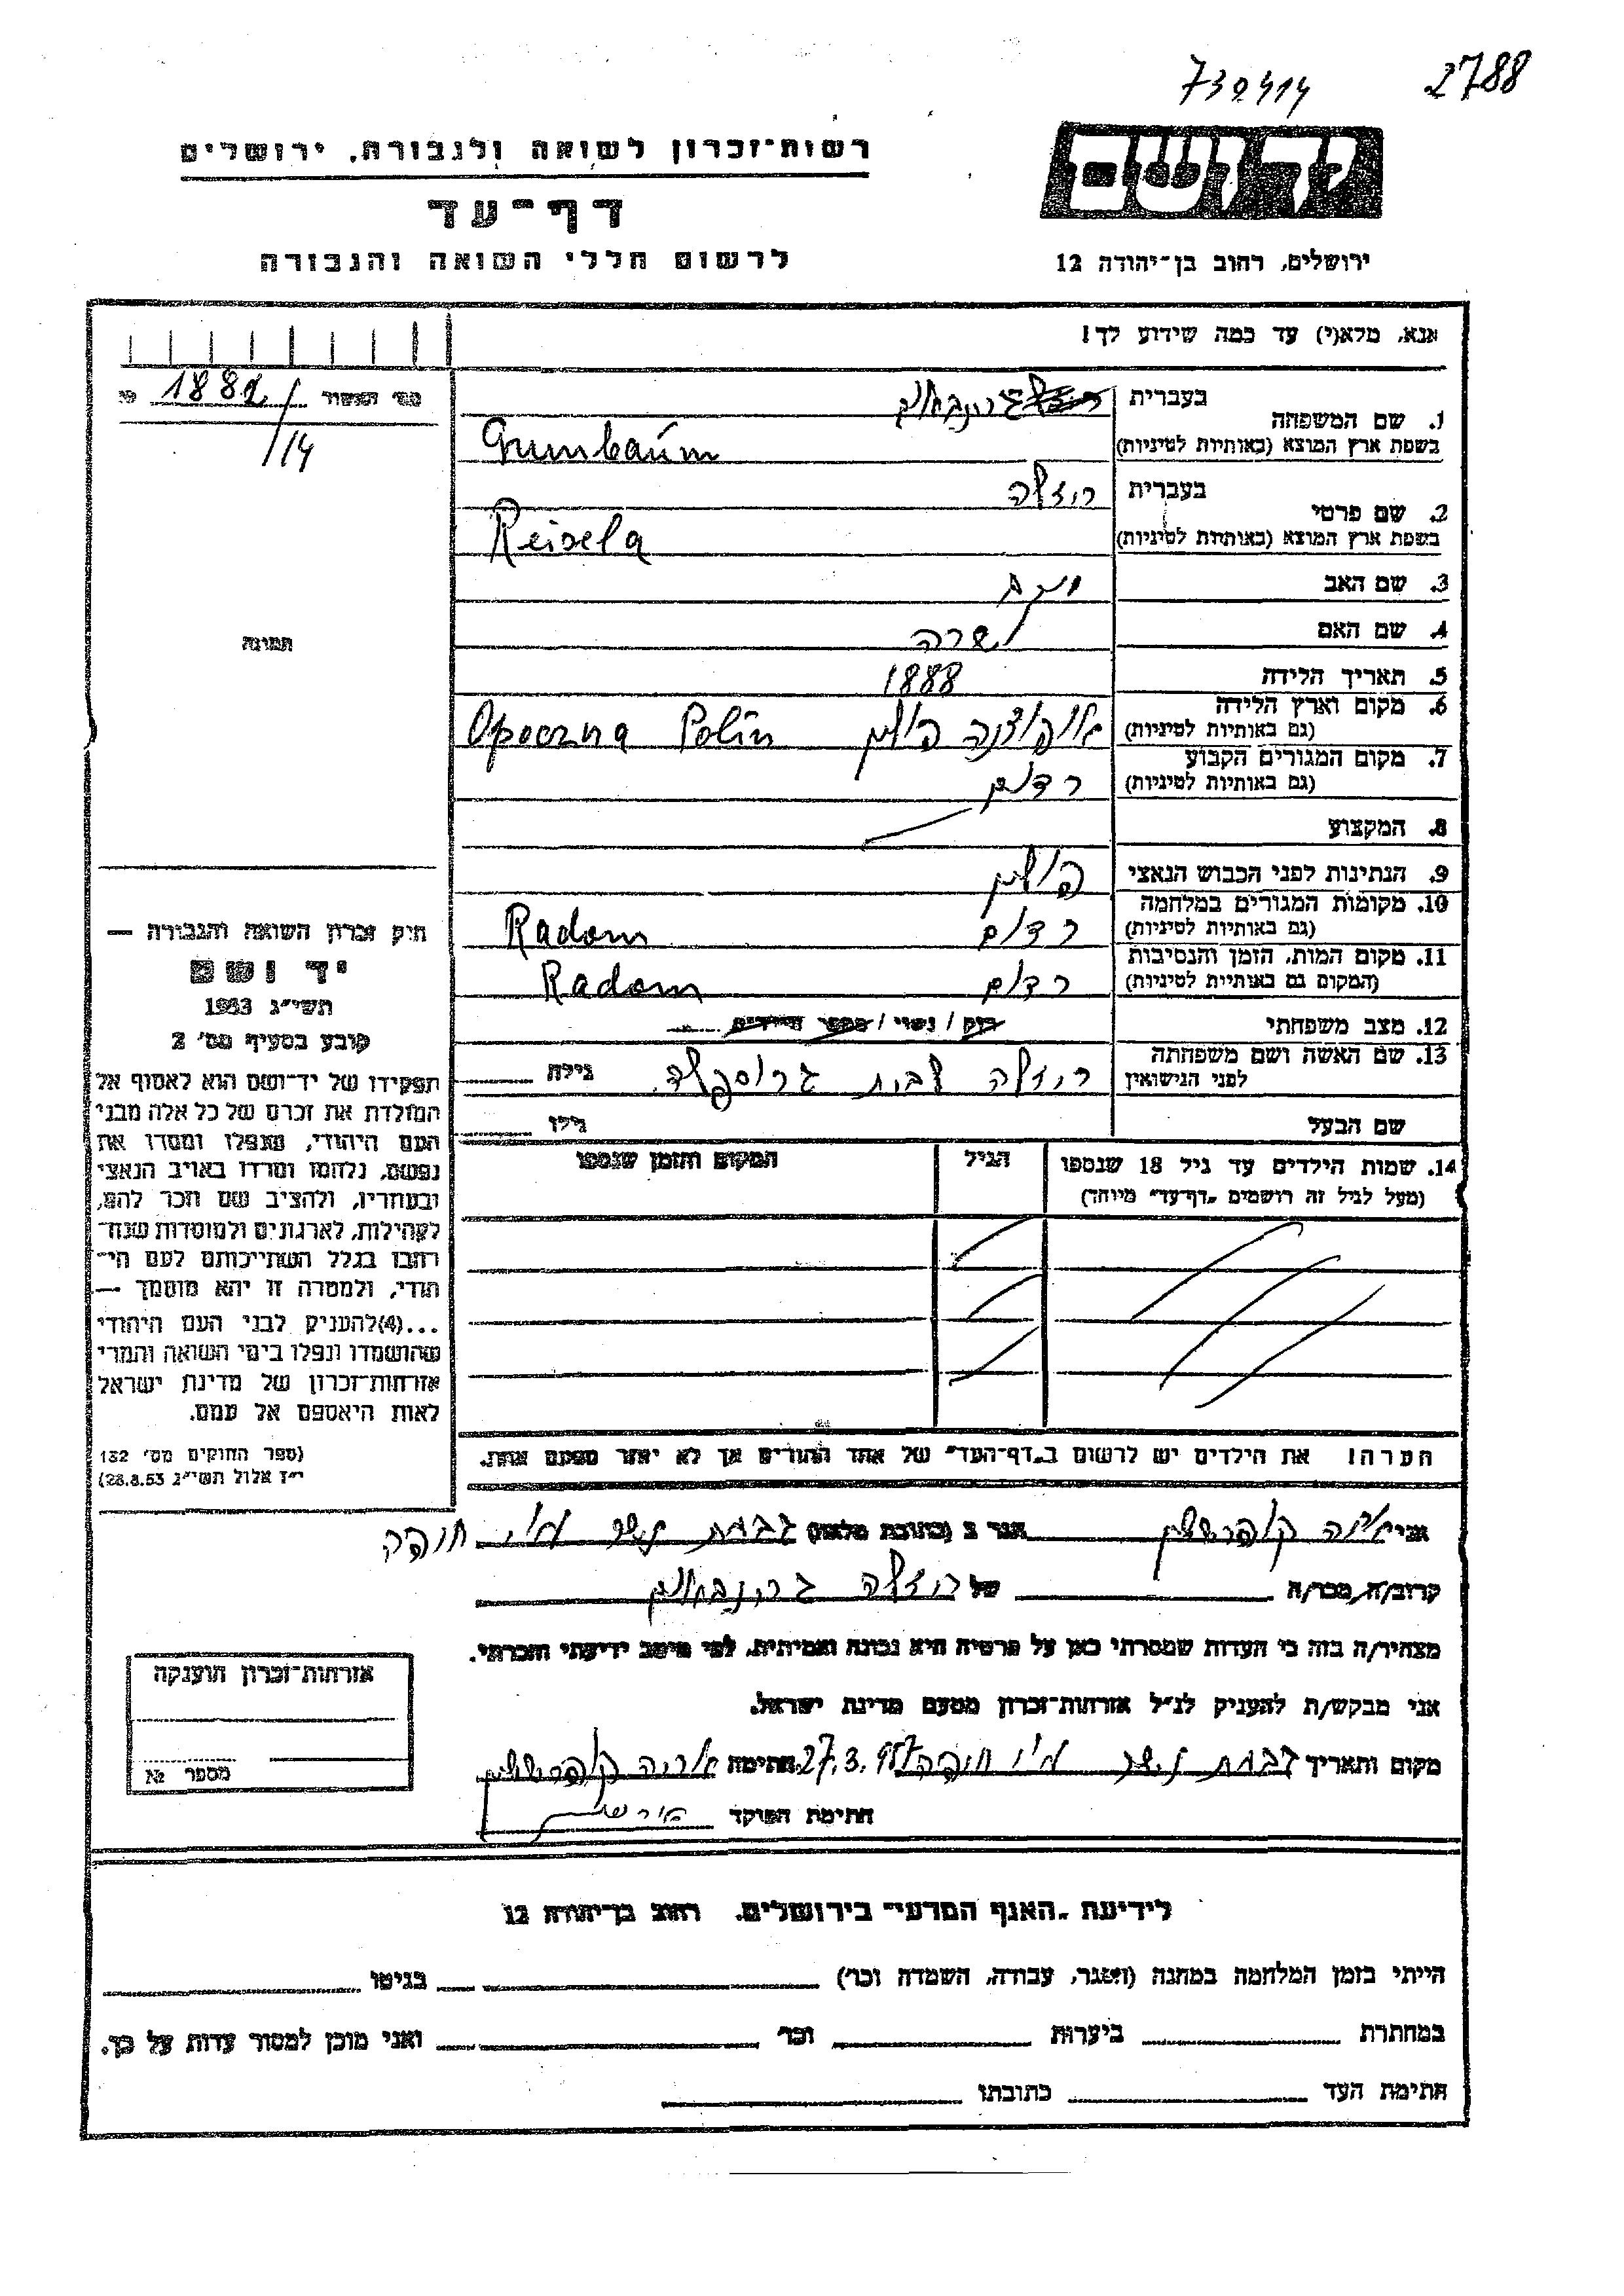 730414 2788
רשות־זכרון לשואה ולגבורה, ירושלים
דף־עד
לרשום חללי השואה והגבורה
יד ושם
ירושלים, רחוב בן־יהודה 12
אנא, מלא(י) עד כמה שידוע לך!
מס' האשור 1882 №
/14
1. שם המשפחה בעברית גרינבאום
בשפת ארץ המוצא (באותיות לטיניות) Grumbaum
2. שם פרטי בעברית ריזלה
בשפת ארץ המוצא (באותיות לטיניות) Reisela
3. שם האב
4. שם האם שרה
5. תאריך הלידה 1888
6. מקום וארץ הלידה אופוצנה פולין Opoczna Polin
(גם באותיות לטיניות)
7. מקום המגורים הקבוע רדום
(גם באותיות לטיניות)
8. המקצוע
9. הנתינות לפני הכבוש הנאצי פולין
10. מקומות המגורים במלחמה רדום Radom
(גם באותיות לטיניות)
11. מקום המות, הזמן והנסיבות רדום Radom
(המקום גם באותיות לטיניות)
12. מצב משפחתי רוק / נשוי / מספר הילדים
13. שם האשה ושם משפחתה ריזלה לבית גרוספלד גילה
לפני הנישואין
שם הבעל גילו
14. שמות הילדים עד גיל 18 שנספו הגיל המקום והזמן שנספו
(מעל לגיל זה רושמים "דף־עד" מיוחד)
הערה! את הילדים יש לרשום ב"דף־העד" של אחד ההורים אך לא יותר מפעם אחת.
תמונה
חוק זכרון השואה והגבורה —
יד ושם
תשי"ג 1953
קובע בסעיף מס' 2
תפקידו של יד־ושם הוא לאסוף אל
המולדת את זכרם של כל אלה מבני
העם היהודי, שנפלו ומסרו את
נפשם, נלחמו ומרדו באויב הנאצי
ובעוזריו, ולהציב שם וזכר להם,
לקהילות, לארגונים ולמוסדות שנח־
רבו בגלל השתייכותם לעם הי־
הודי, ולמטרה זו יהא מוסמך —
...(4)להעניק לבני העם היהודי
שהושמדו ונפלו בימי השואה והמרי
אזרחות־זכרון של מדינת ישראל
לאות היאספם אל עמם.
(ספר החוקים מס' 132
י"ז אלול תשי"ג 28.8.53)
אני אריה הגר ב (כתובת מלאה) גבעת נשר ע"י חיפה
קרוב/ה, מכר/ה של ריזלה גרינבאום
מצהיר/ה בזה כי העדות שמסרתי כאן על פרטיה היא נכונה ואמיתית, לפי מיטב ידיעתי והכרתי.
אני מבקש/ת להעניק לנ"ל אזרחות־זכרון מטעם מדינת ישראל.
מקום ותאריך גבעת נשר ע"י חיפה 27.3.957 חתימה אריה
חתימת הפוקד
אזרחות־זכרון הוענקה
מספר №
לידיעת "האגף המדעי" בירושלים, רחוב בן־יהודה 12
הייתי בזמן המלחמה במחנה (הסגר, עבודה, השמדה וכר') בגיטו
במחתרת ביערות וכר' ואני מוכן למסור עדות על כך.
חתימת העד כתובתו